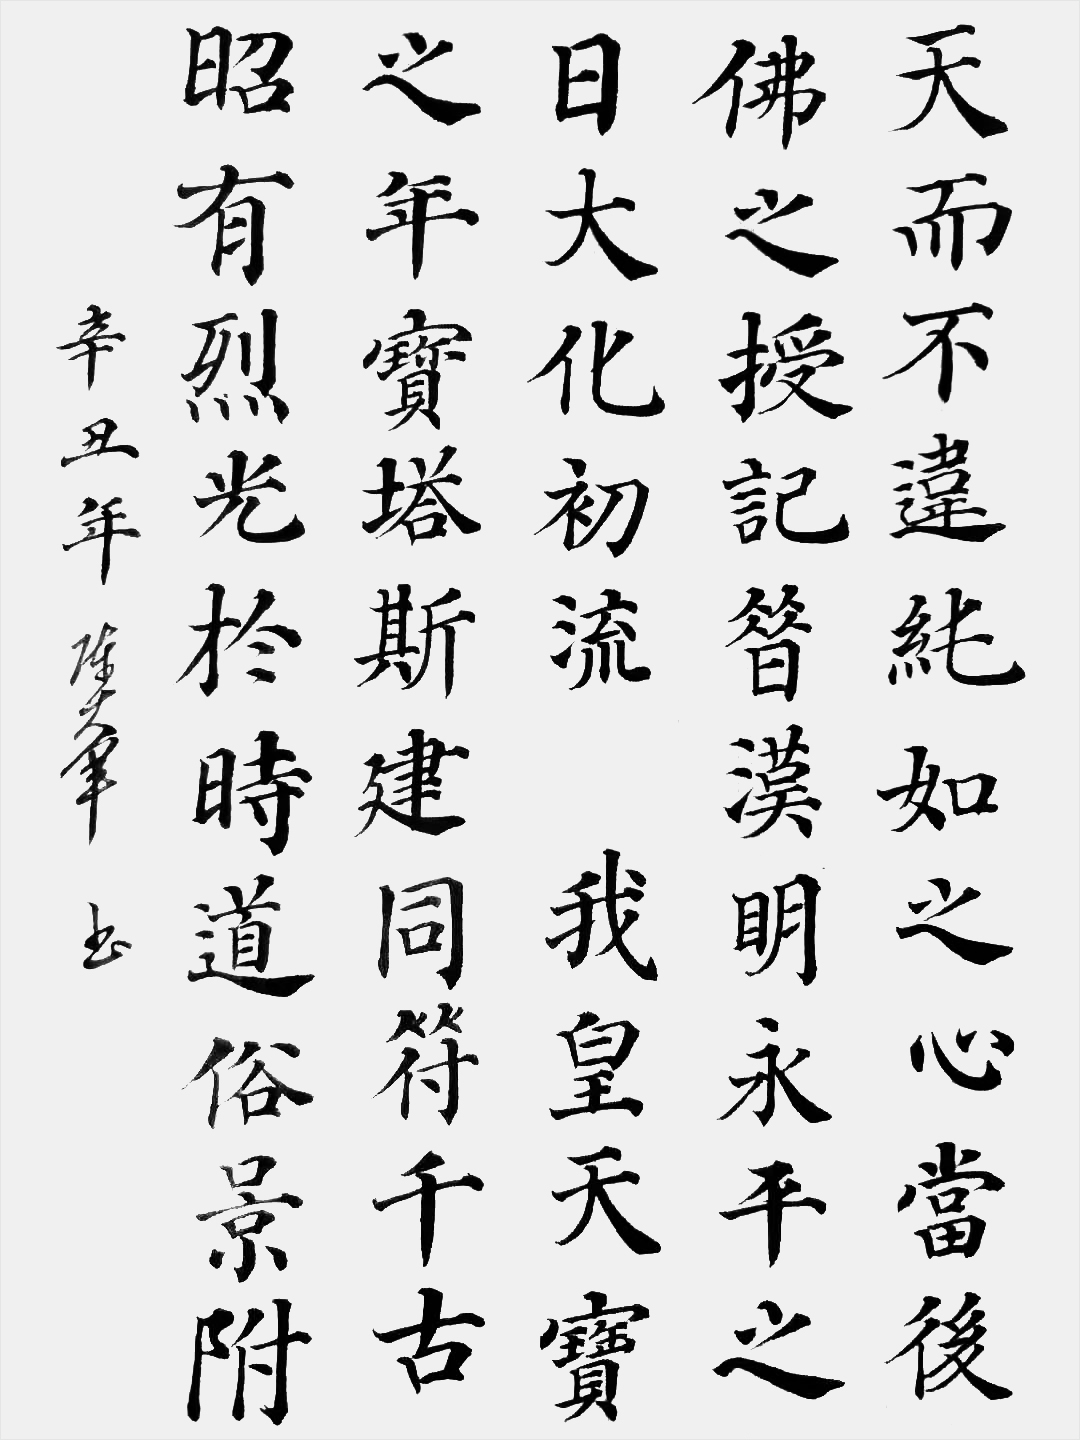 天而不違純如之心當後
佛之授記昔漢明永平之
日大化初流 我皇天寶
之年寶塔斯建同符千古
昭有烈光於時道俗景附
辛丑年陸大军 书